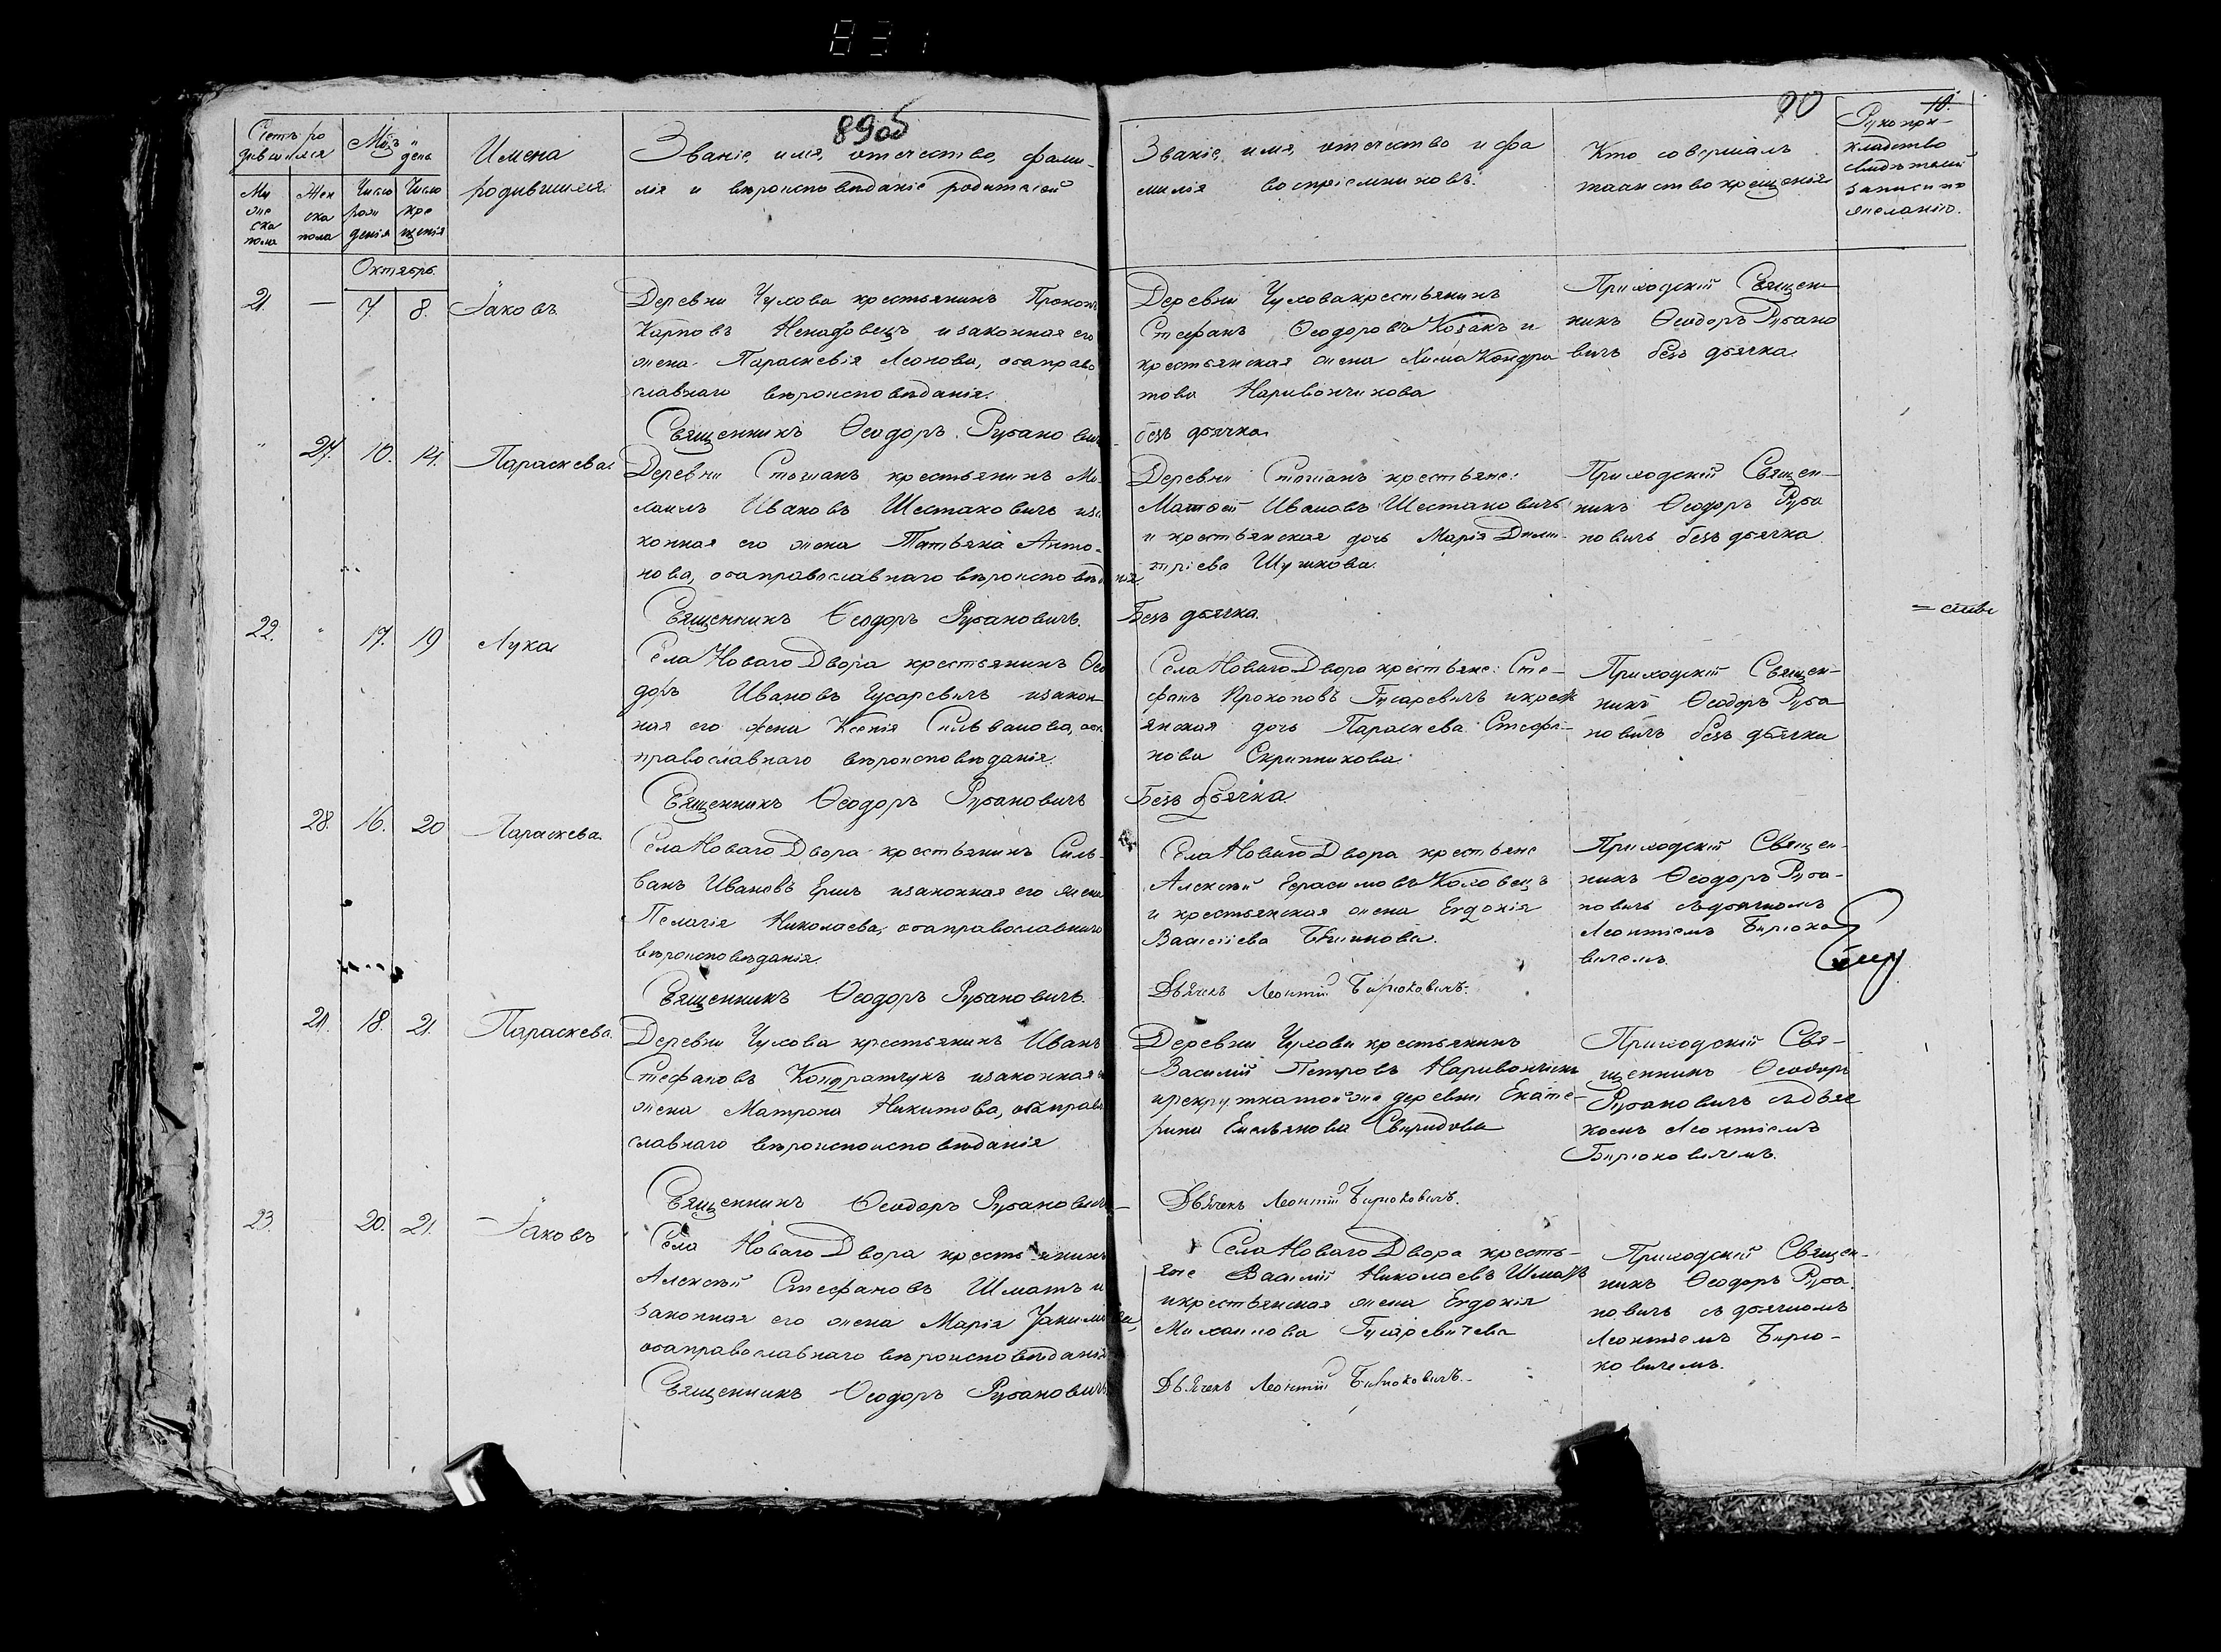 831
89об
90
10.
Счетъ ро
дившихся
Мѣц. и
день
Имена
родившихся.
Званіе, имя, отечество, фами-
лія и вѣроисповѣданіе родителей
Званіе, имя, отечество и фа
милія воспріемниковъ.
Кто совершалъ
таинство крещенія
Рукопри-
кладство
свидѣтелей
записи по
желанію.
Му
же
ска
пола
Жен
ска
пола
Число
рож
денія
Число
кре
щенія
Октябрь.
21. — 7 8. Іаковъ
Деревни Чухова крестьянинъ Прокопъ
Карповъ Ненадовецъ и законная его
жена Параскевія Леонова, оба право
славнаго вѣроисповѣданія.
Священникъ Ѳеодоръ Рубановичъ
Деревни Чухова крестьянинъ
Стефанъ Ѳеодоровъ Козакъ и
крестьянская жена Хима Кондра
това Наривончикова
без дьячка.
Приходскій Священ
никъ Ѳеодоръ Рубано
вичъ безъ дьячка.
" 27. 10. 14. Параскева.
Деревни Стошанъ крестьянинъ Ми
хаилъ Ивановъ Шестаковичъ и за
конная его жена Татьяна Анто-
нова, оба православнаго вѣроисповѣданія.
Священникъ Ѳеодоръ Рубановичъ.
Деревни Стошанъ крестьяне:
Матѳей Ивановъ Шестаковичъ
и крестьянская дочь Марія Дими-
тріева Шушкова.
Безъ дьячка.
Приходскій Священ-
никъ Ѳеодоръ Руба
новичъ безъ дьячка
22. " 17. 19 Лука
Села Новаго Двора крестьянинъ Ѳео
доръ Ивановъ Гусаревичъ и закон
ная его жена Ксенія Сильванова, оба
православнаго вѣроисповѣданія.
Священникъ Ѳеодоръ Рубановичъ
Села Новаго Двора крестьяне: Сте-
фанъ Прокоповъ Гусаревичъ и крест
янская дочь Параскева Стефа-
нова Скрипникова.
Безъ Дьячка.
Приходскій Священ-
никъ Ѳеодоръ Руба
новичъ безъ дьячка
28. 16. 20 Параскева.
Села Новаго Двора крестьянинъ Силь-
ванъ Ивановъ Ершъ и законная его жена
Пелагія Николаева, оба православнаго
вѣроисповѣданія.
Священникъ Ѳеодоръ Рубановичъ.
Села Новаго Двора крестьяне
Алексѣй Герасимовъ Коховецъ
и крестьянская жена Евдокія
Василіева
Дьячекъ Леонтій Бирюковичъ.
Приходскій Священ-
никъ Ѳеодоръ Руба-
новичъ съ дьячкомъ
Леонтіемъ Бирюко
вичемъ.
29. 18. 21. Параскева.
Деревни Чухова крестьянинъ Иванъ
Стефановъ Кондратчукъ и законная
жена Матрона Никитова, оба право
славнаго вѣроисповѣданія
Священникъ Ѳеодоръ Рубановичъ
Деревни Чухови крестьянинъ
Василій Петровъ Наривончикъ
и рекрутка той же деревни Екате-
рина Емельянова Свиридова
Дьячекъ Леонтій Бирюковичъ.
Приходскій Свя-
щенникъ Ѳеодоръ
Рубановичъ съ дьяч
комъ Леонтіемъ
Бирюковичемъ.
23 20. 21. Іаковъ
Села Новаго Двора крестьянинъ
Алексѣй Стефановъ Шматъ и
законная его жена Марія Якимова,
оба православнаго вѣроисповѣданія
Священникъ Ѳеодоръ Рубановичъ
Села Новаго Двора кресть-
яне Василій Николаевъ Шматъ
и крестьянская жена Евдокія
Михаилова Гусаревичева
Дьячекъ Леонтій Бирюковичъ.
Приходскій Священ-
никъ Ѳеодоръ Руба
новичъ съ дьячкомъ
Леонтіемъ Бирю-
ковичемъ.